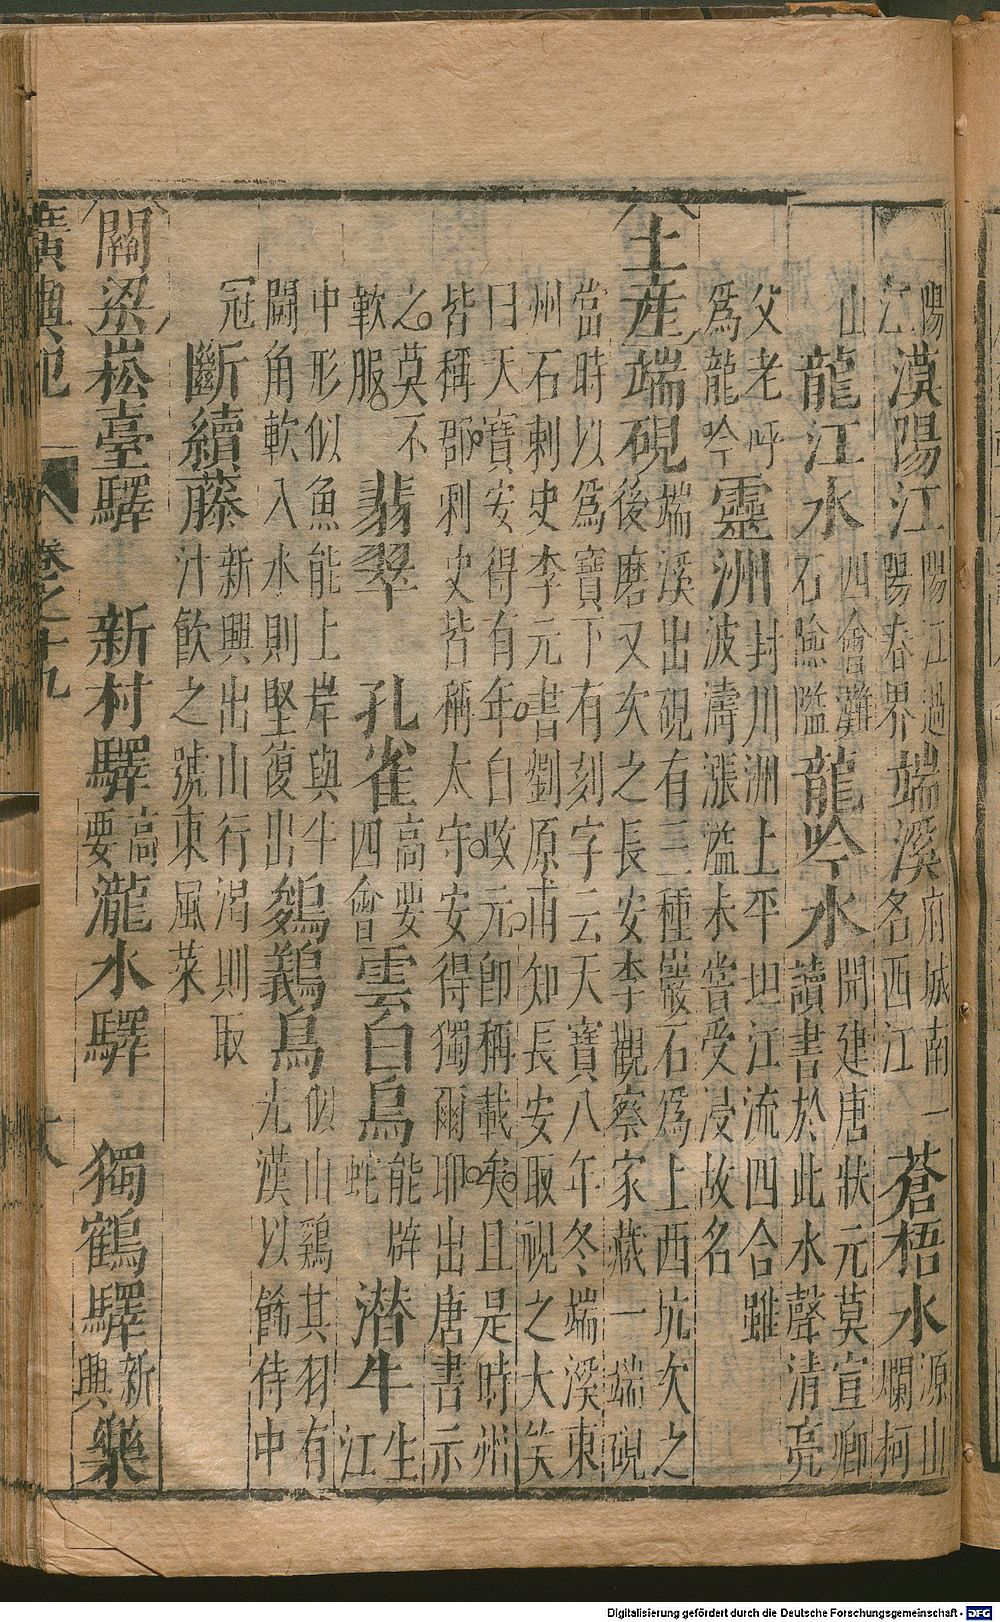 陽江漠陽江陽江過陽春界端溪府城南一名西江蒼梧水源出爛柯
山龍江水四會灘石險隘龍吟水開建唐狀元莫宣卿讀書於此水聲清亮
父老呼爲龍吟靈洲封川洲上平坦江流四合雖波濤漲溢未嘗受浸故名
土產端硯端溪出硯有三種巖石爲上西坑次之後磨又次之長安李觀察家藏一端硯
當時以爲寶下有刻字云天寶八年冬端溪東州石刺史李元書劉原甫知長安取視之大笑
曰天寶安得有年自改元卽稱載矣且是時州皆稱郡刺史皆稱太守安得獨爾耶出唐書示
之莫不歎服翡翠 孔雀高要四會雲白烏能辟蛇潛牛生江
中形似魚能上岸與牛鬭角軟入水則堅復出鵕鸃鳥似山鷄其羽有光漢以飾侍中
冠斷續藤新興出山行渴則取汁飲之號東風菜
關梁崧臺驛 新村驛高要瀧水驛 獨鶴驛新興樂
廣輿記 卷之十九
Digitalisierung gefördert durch die Deutsche Forschungsgemeinschaft - DFG